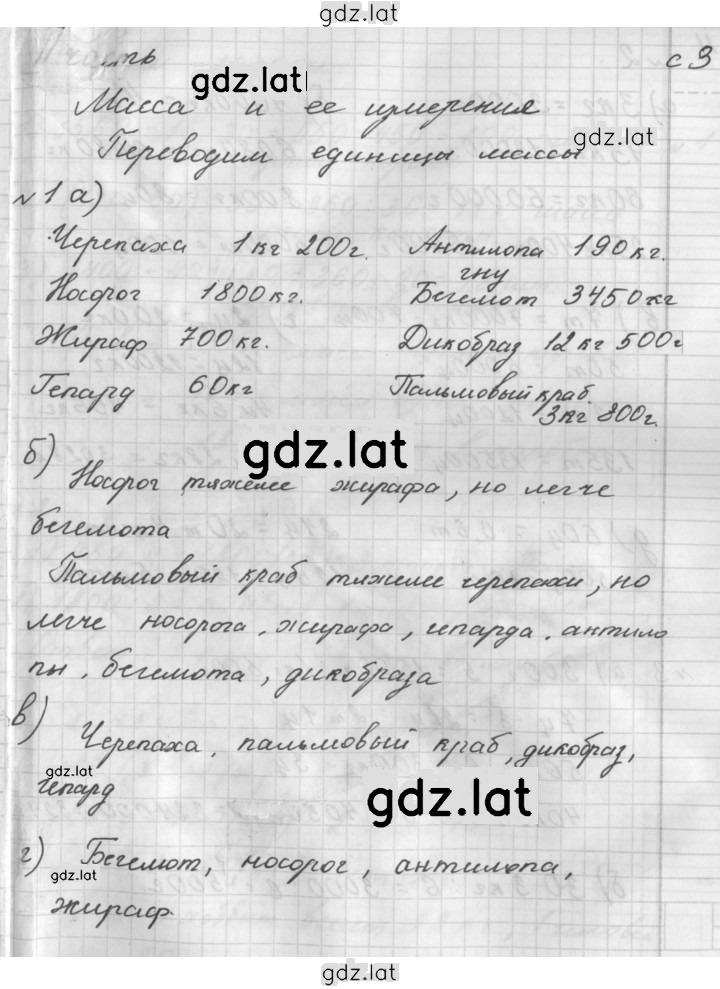 gdz.lat
с 3
gdz.lat
Масса и ее измерения
gdz.lat
Переводим единицы массы
№ 1 а)
Черепаха 1 кг 200 г. Антилопа 190 кг.
гну
Носорог 1800 кг. Бегемот 3450 кг
Жираф 700 кг. Дикобраз 12 кг 500 г
Гепард 60 кг Пальмовый краб.
3 кг 800 г.
gdz.lat
б) Носорог тяжелее жирафа, но легче
бегемота
Пальмовый краб тяжелее черепахи, но
легче носорога, жирафа, гепарда, антило
пы, бегемота, дикобраза
в) Черепаха, пальмовый краб, дикобраз,
gdz.lat
гепард
gdz.lat
г) Бегемот, носорог, антилопа,
gdz.lat
жираф.
gdz.lat